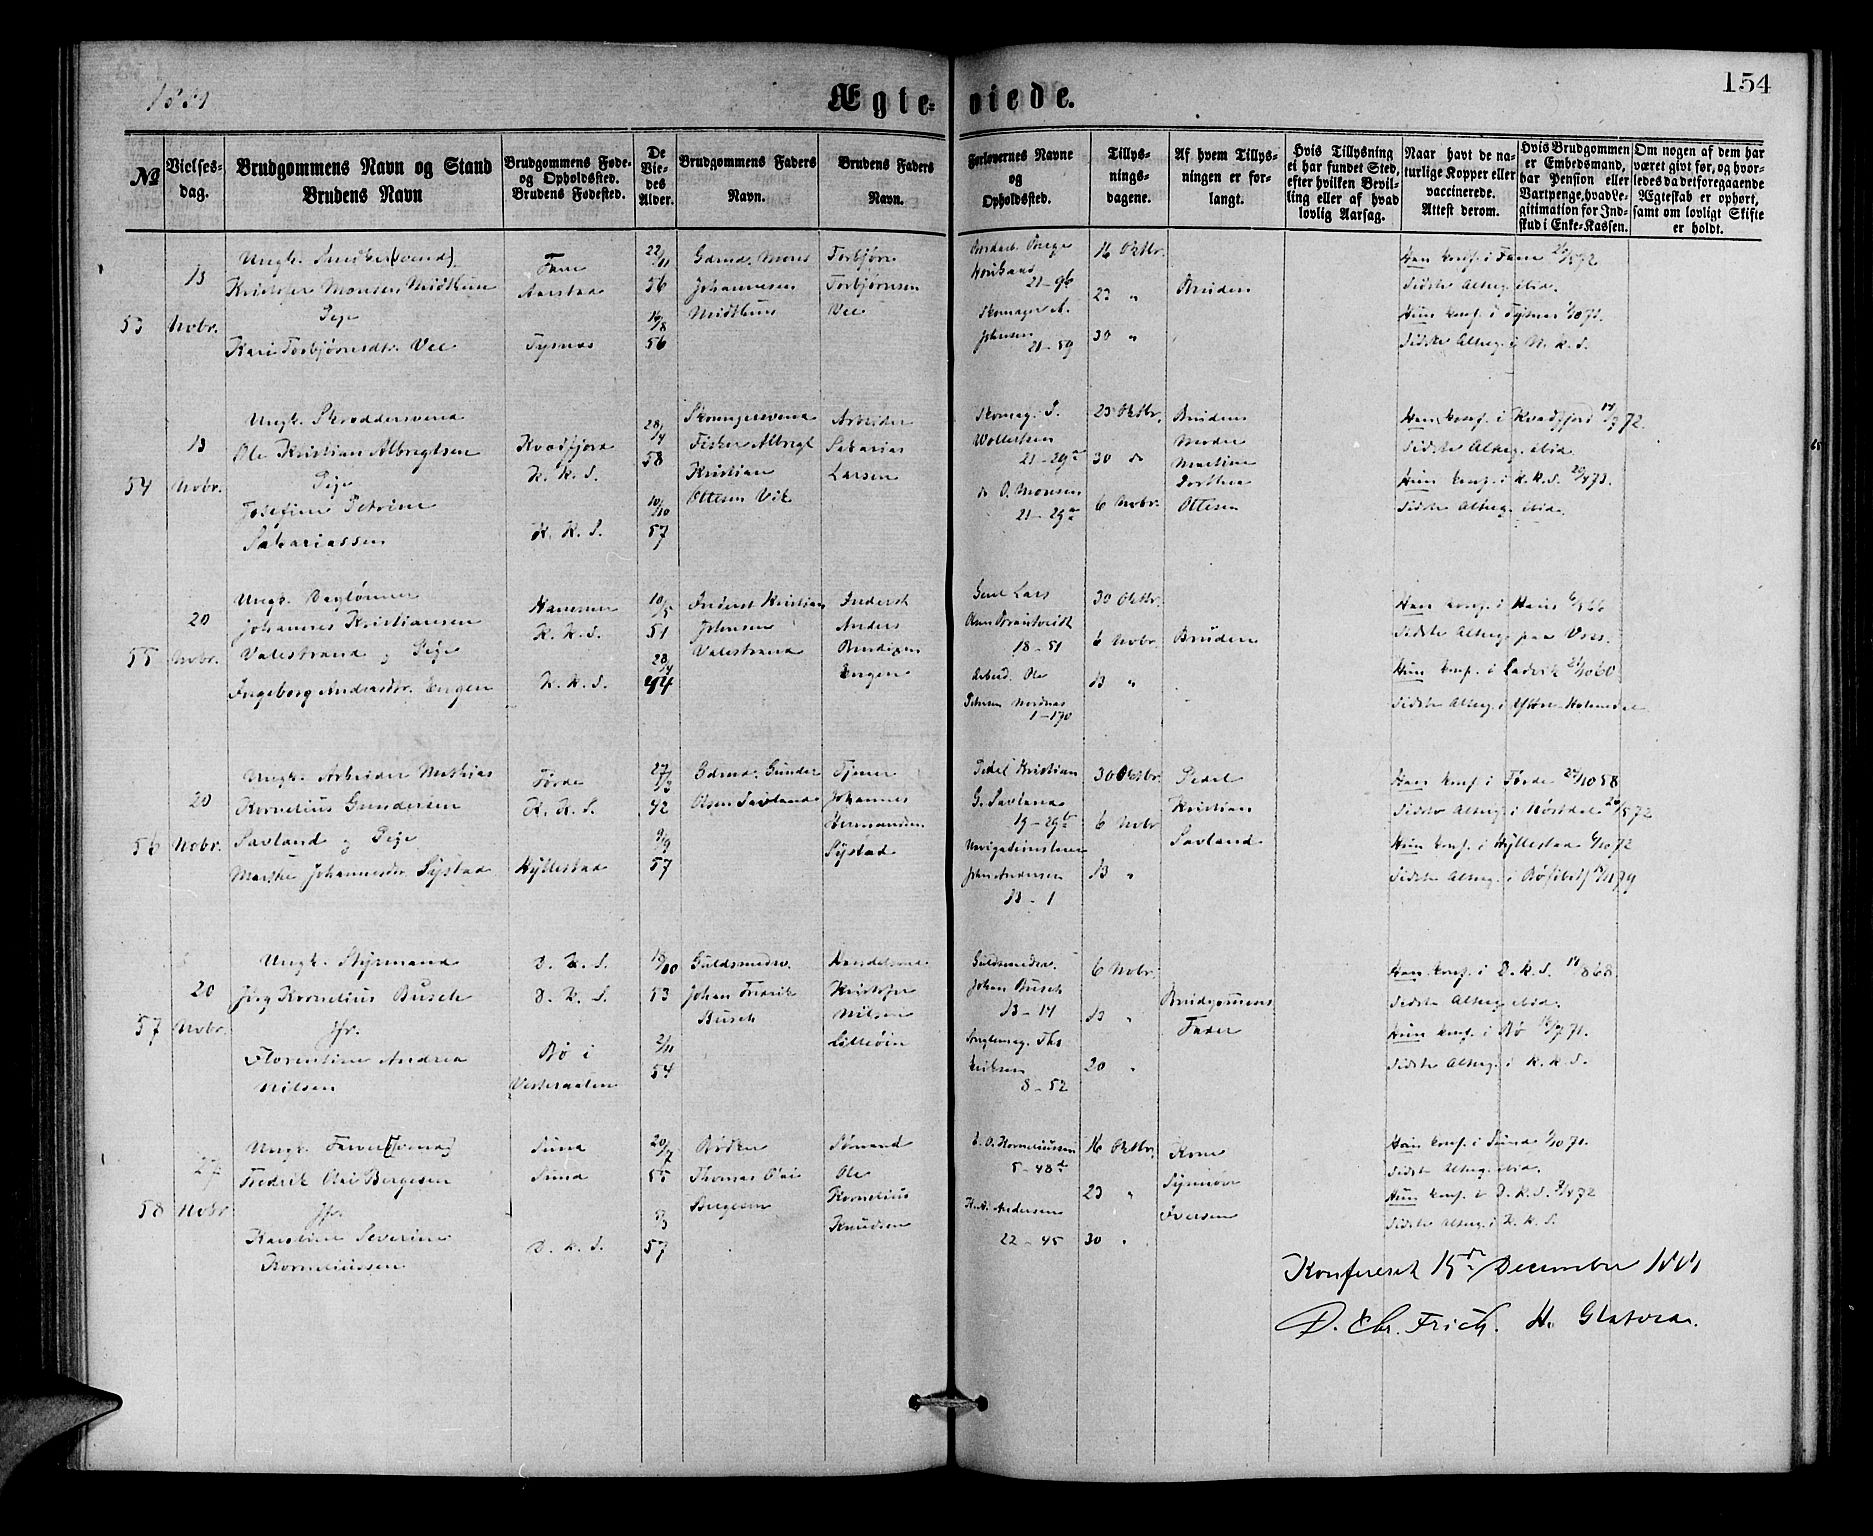 1881
Ægte-viede.
154
№
Vielses-dag.
Brudgommens Navn og Stand
Brudens Navn
Brudgommens Føde- og Opholdssted.
Brudens Fødested.
De Viedes Alder.
Brudgommens Faders Navn.
Brudens Faders Navn.
Forlovernes Navne og Opholdssted.
Tillysningsdagene.
Af hvem Tillysningen er forlangt.
Hvis Tillysning ei har fundet Sted, efter hvilken Bevilling eller af hvad lovlig Aarsag.
Naar havt de naturlige Kopper eller vaccinerede. Attest derom.
Hvis Brudgommen er Embedsmand, har Pension eller Vartpenge, hvad Legitimation for Indskud i Enke-Kassen.
Om nogen af dem har været givt før, og hvorledes da det foregaaende Ægteskab er ophørt, samt om lovligt Skifte er holdt.
53
13 Novbr.
Ungk. Smed(svend)
Kristofer Monsen Midthun
Pige
Kari Torbjørnsdtr. Vee
Fane
Aarstad
Tysnæs
22/11 56
16/8 56
Gdmd. Mons
Johannesen
Midthun
Torbjørn
Torbjørnsen
Vee
21-96
Skomager A.
Johnsen
21-59
16 Oktbr.
23 "
30 "
Bruden
Han konf. i Fane 26/5 72
Sidste Alterg. ibid.
Hun konf. i Tysnæs 1/10 71.
Sidste Alterg. i N. K. S.
54
13 Novbr.
Ungk. Skræddersvend
Ole Kristian Albregtsen
Pige
Josefine Petrine
Sakariassen
Kvædfjord
K. K. S.
K. K. S.
28/4 58
10/10 57
Fisker Albregt
Kristian
Ottesen Vik
Arbeider
Sakarias
Larsen
Skomag. S.
Wollertsen
21-29a
do O. Monsen
21-29a
23 Oktbr.
30 do
6 Novbr.
Brudens
Moder
Martine
Dorthea
Ottesen
Han konf. i Kvædfjord 14/7 72.
Sidste Alterg. ibid.
Hun konf. i K. K. S. 20/4 73.
Sidste Alterg. ibid.
55
20 Novbr.
Ungk. Daglønner
Johannes Kristiansen
Valestrand og Pige
Ingeborg Andersdtr. Engen
K. K. S.
K. K. S.
10/5 51
28/4 44
Inderst Kristian
Johnsen
Valestrand
Inderst
Anders
Engen
Lars
18-51
Arbeid. Ole
Petersen Nordnæs
1-170
30 Oktbr.
6 Novbr.
13 "
Bruden
Han konf. i Haus 6/5 66
Sidste Alterg. paa Voss.
Hun konf. i Ladvik 21/10 60
Sidste Alterg. i Yttre-Holmedal
56
20 Novbr.
Ungk. Arbeider Mathias
Kornelius Gundersen
Savland og Pige
Marthe Johannesdtr Systad
Førde
K. K. S.
Hyllestad
27/3 42
9/9 57
Gdmd. Gunder
Olsen Savland
Tjener
Johannes
Hermansen
Systad
Pedel Kristian
G. Savland
19-29b
Navigationslærer
Johs Andersen
13-1
30 Oktbr.
6 Novbr
13 "
Pedel
Kristian
Savland
Han konf. i Førde 24/10 58
Sidste Alterg. i Røstdal 20/5 72
Hun konf. i Hyllestad 6/10 72
Sidste Alterg. i
57
20 Novbr.
Ungk. Styrmand
Jørg Kornelius Busch
Jfr.
Florentine Andrea
Nilsen
D. K. S.
D. K. S.
Bø i
Vesteraalen
19/10 53
2/11 54
Guldsmedm.
Johan Fredrik
Busch
Handelsmand
Kristofer
Nilsen
Lilleøin
Guldsmedm.
Johan Busch
13-14
Ths
Eriksen
8-52
6 Novbr.
13 "
20 "
Brudgommens
Fader
Han konf. i D. K. S. 14/8 68.
Sidste Alterg. ibid.
Hun konf. i Bø 16/7 71.
Sidste Alterg. i K. K. S.
58
27 Novbr
Ungk. Farver(svend)
Fredrik Olai Bergesen
Jfr.
Karoline Severine
Korneliussen
Sund
Sund
D. K. S.
20/7 55
57
Bødker
Thomas Olai
Bergesen
Sømand
Ole
Kornelius
Knudsen
E. O. Korneliussen
5-48d
K. A. Andersen
22-45
16 Oktbr.
23 "
30 "
Kone
Synnøve
Iversen
Han konf. i Sund 1/10 71.
Sidste Alterg. ibid.
Hun konf. i D. K. S. 72
Sidste Alterg. i K. K. S.
Konfereret 15de December 1881
D. Chr. Frich. H.